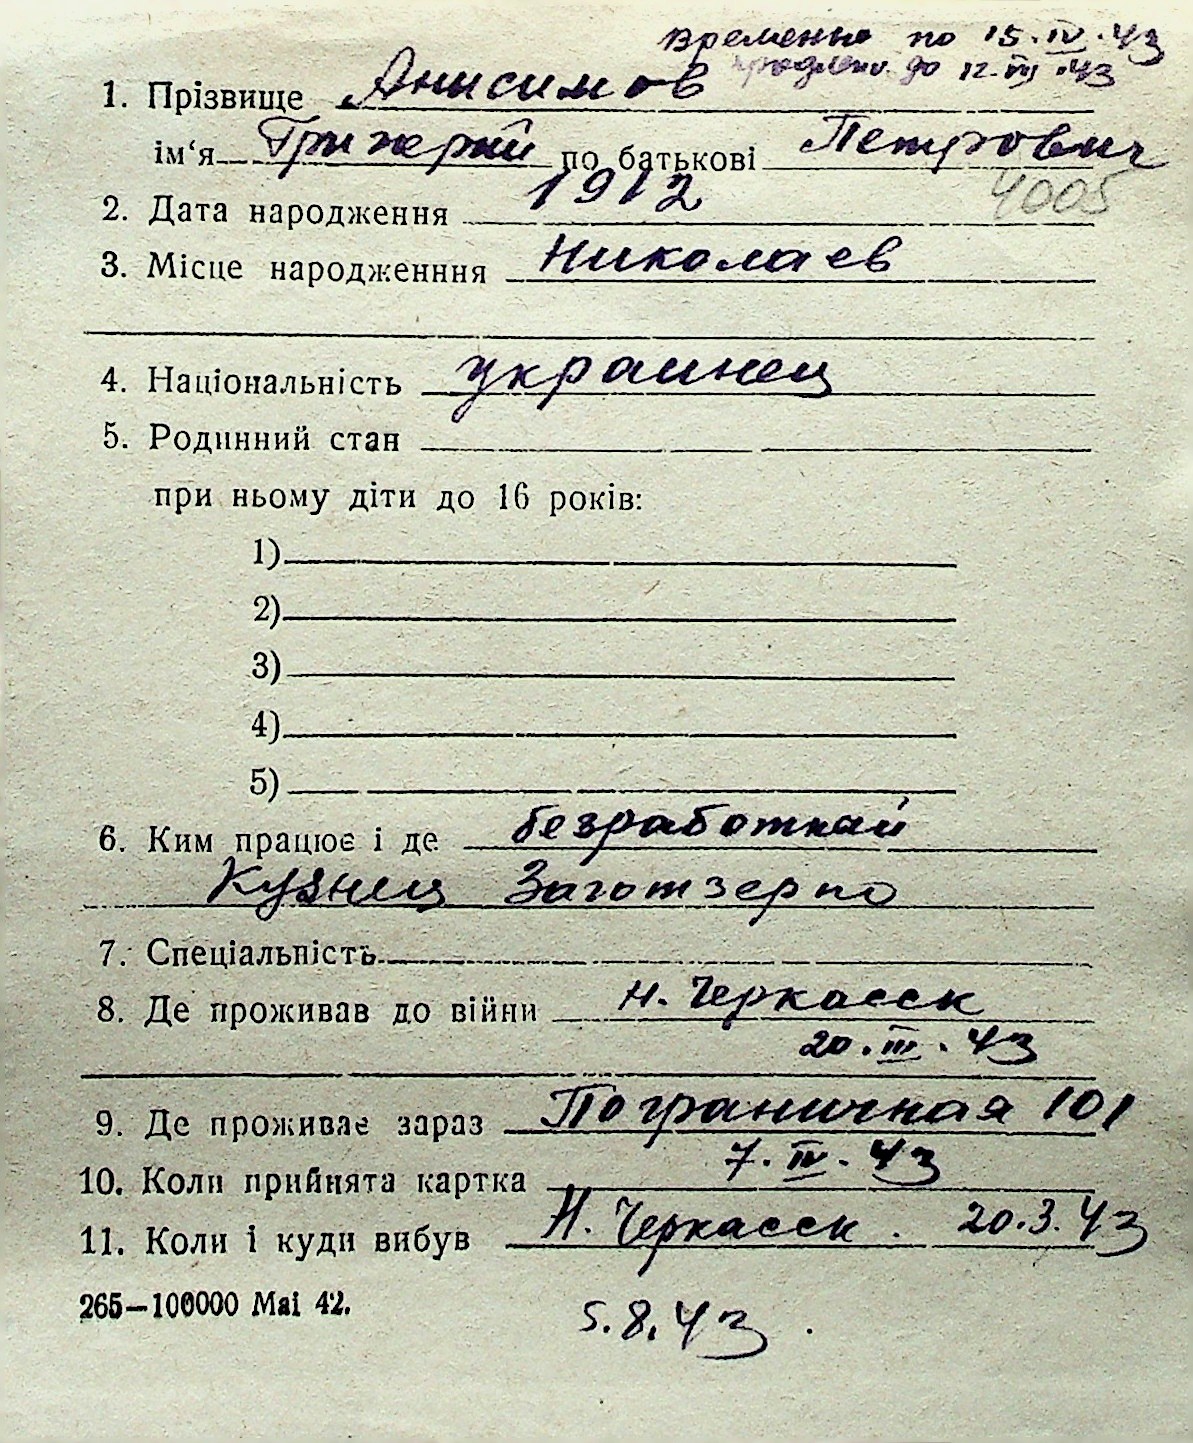 временно по 15.IV.43
продлено до 12.VIII.43
1. Прізвище Анисимов
ім‘я Григорий по батькові Петрович
2. Дата народження 1912 4005
3. Місце народженння Николаев
4. Національність украинец
5. Родинний стан
при ньому діти до 16 років:
1)
2)
3)
4)
5)
6. Ким працює і де безработный
Кузнец Заготзерно
7. Спеціальність
8. Де проживав до війни Н. Черкасск
20.III.43
9. Де проживає зараз Пограничная 101
10. Коли прийнята картка 7.IV.43
11. Коли і куди вибув Н. Черкасск. 20.3.43
265—100000 Маі 42.
5.8.43.